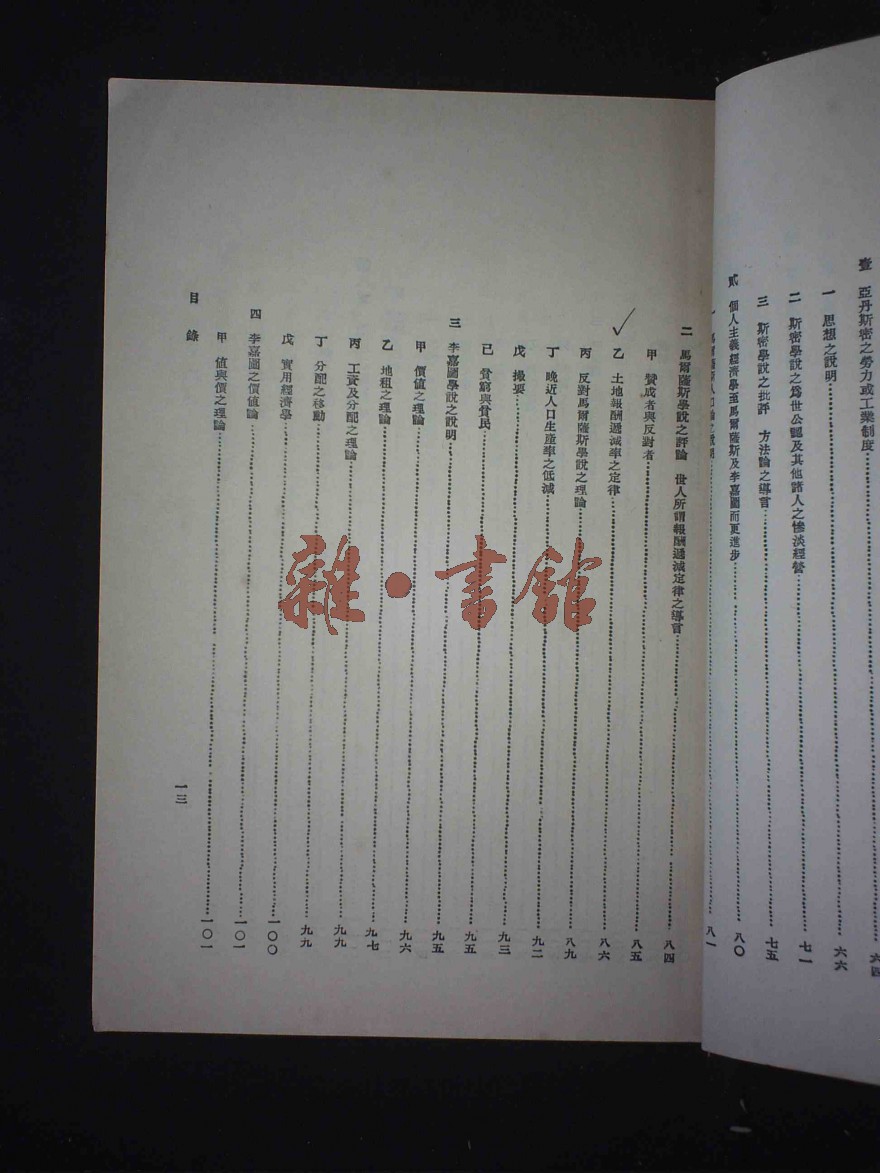 壹　亞丹斯密之勞力或工業制度……六四
一　思想之說明……六六
二　斯密學說之爲世公認及其他諸人之慘淡經營……七一
三　斯密學說之批評　方法論之導言……七五
貳　個人主義經濟學至馬爾薩斯及李嘉圖而更進步……八〇
一　馬爾薩斯人口論之說明……八一
二　馬爾薩斯學說之評論　世人所謂報酬遞減定律之導言……八四
甲　贊成者與反對者……八五
乙　土地報酬遞減率之定律……八六
丙　反對馬爾薩斯學說之理論……八九
丁　晚近人口生產率之低減……九二
戊　撮要……九三
己　貧窮與貧民……九五
三　李嘉圖學說之說明……九五
甲　價值之理論……九六
乙　地租之理論……九七
丙　工資及分配之理論……九九
丁　分配之移動……九九
戊　實用經濟學……一〇〇
四　李嘉圖之價值論……一〇一
甲　值與價之理論……一〇一
目錄
一三
雜·書館